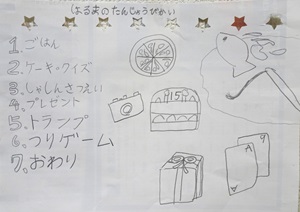 はるあのたんじょうびかい
1.ごはん
2.ケーキ・クイズ
3.しゃしんさつえい
4.プレゼント
5.トランプ
6.つりゲーム
7.おわり
15
A
9